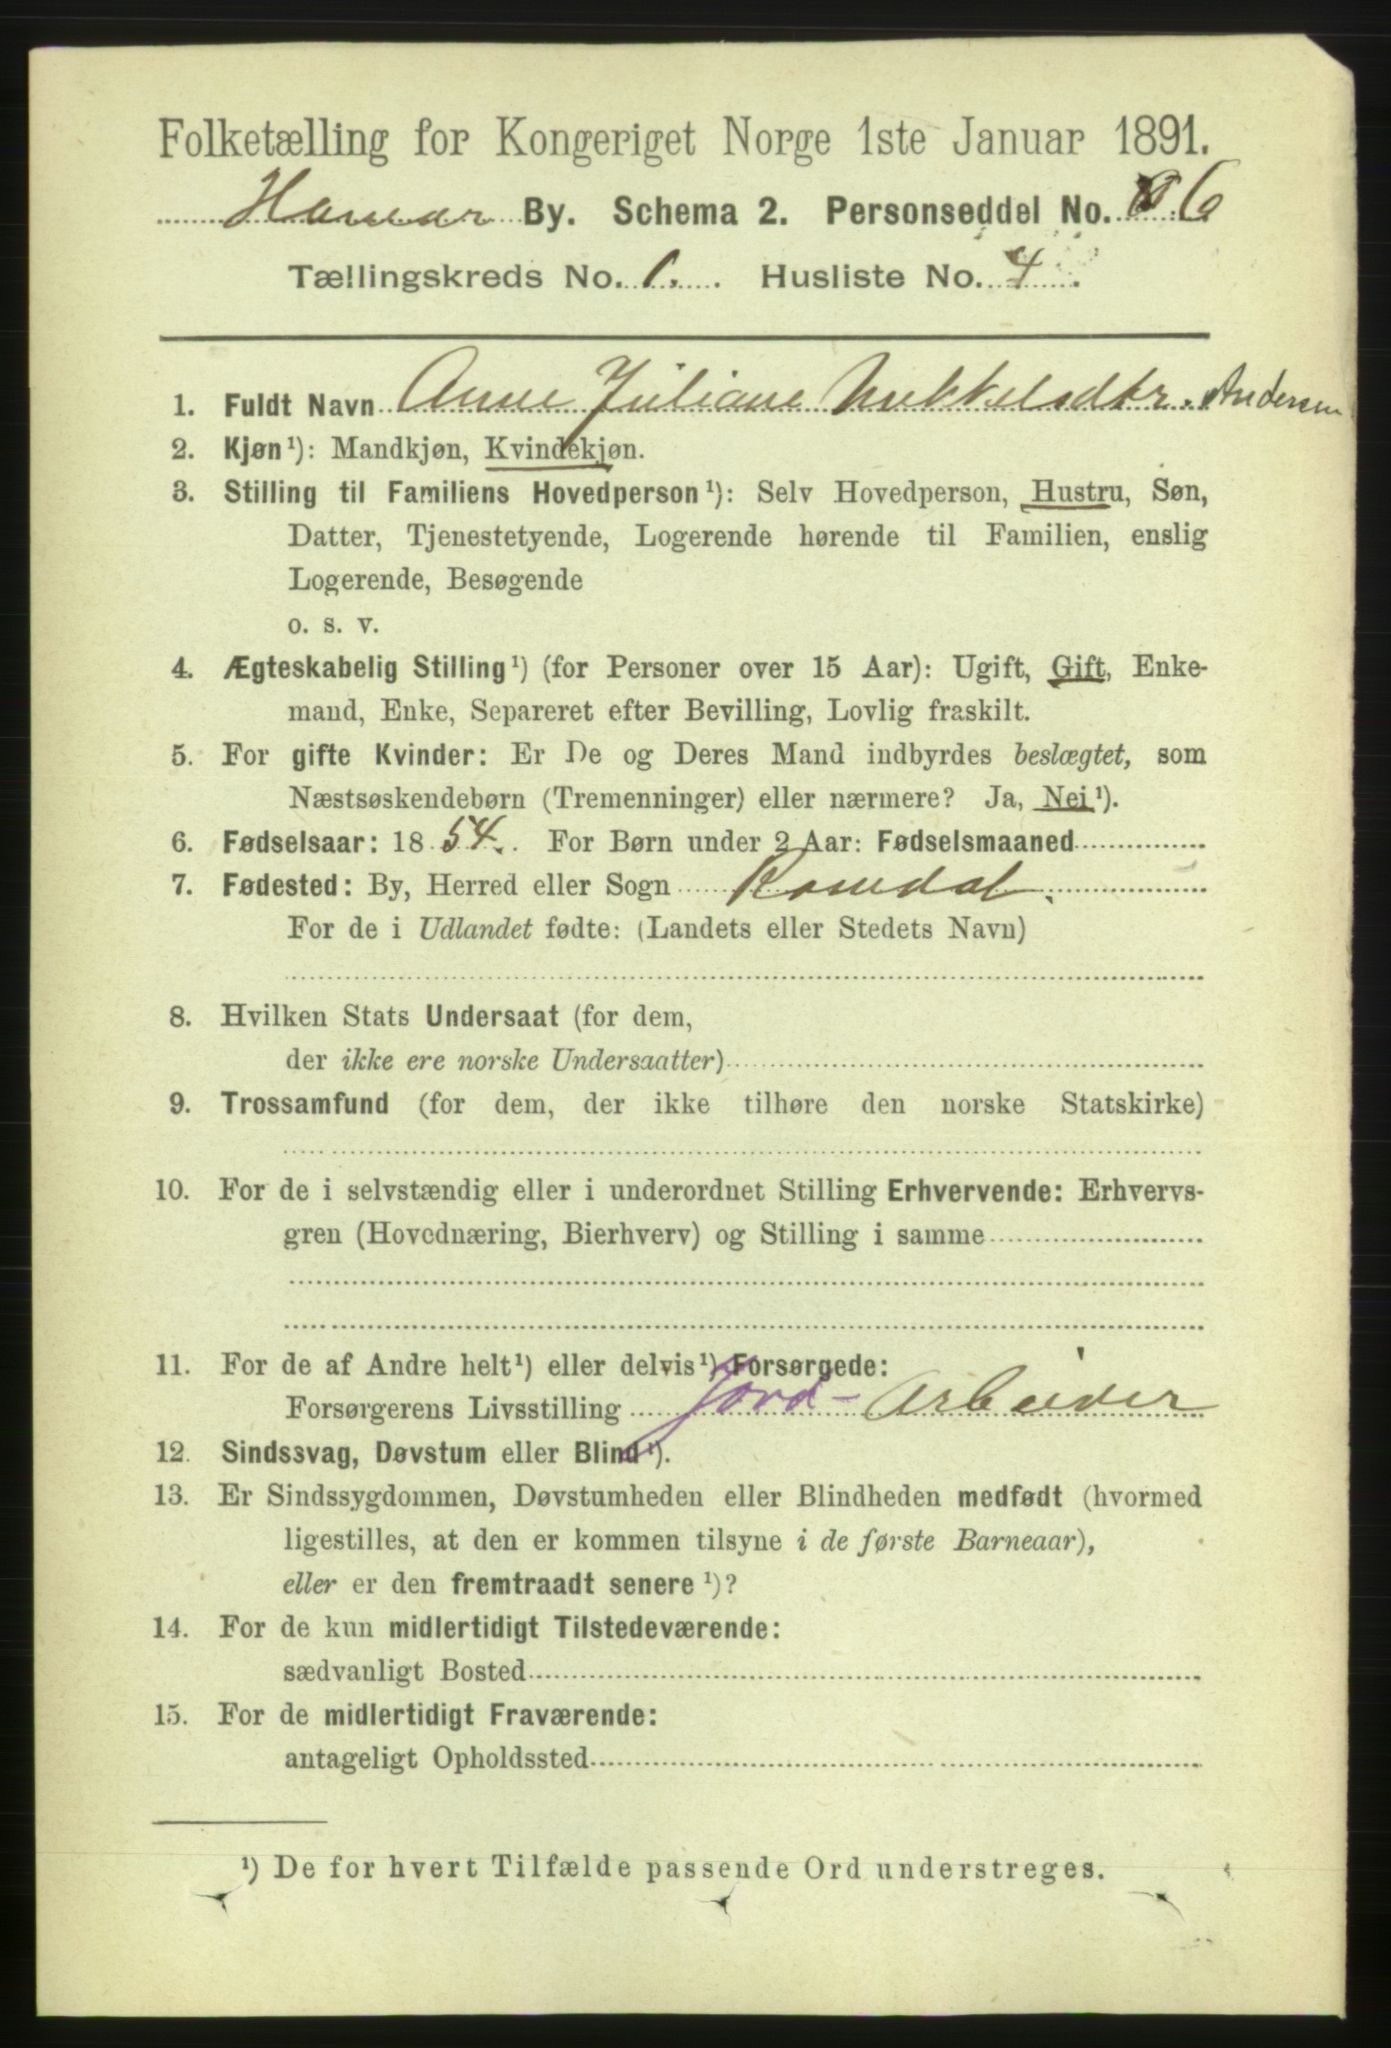 Folketælling for Kongeriget Norge 1ste Januar 1891.
Hamar By. Schema 2. Personseddel No. 6
Tællingskreds No. 1. Husliste No. 4.
1. Fuldt Navn Anne Juliane Mikkelsdtr. Andersen
2. Kjøn¹): Mandkjøn, Kvindekjøn.
3. Stilling til Familiens Hovedperson¹): Selv Hovedperson, Hustru, Søn,
Datter, Tjenestetyende, Logerende hørende til Familien, enslig
Logerende, Besøgende
o. s. v.
4. Ægteskabelig Stilling¹) (for Personer over 15 Aar): Ugift, Gift, Enke-
mand, Enke, Separeret efter Bevilling, Lovlig fraskilt.
5. For gifte Kvinder: Er De og Deres Mand indbyrdes beslægtet, som
Næstsøskendebørn (Tremenninger) eller nærmere? Ja, Nei¹).
6. Fødselsaar: 1854. For Børn under 2 Aar: Fødselsmaaned
7. Fødested: By, Herred eller Sogn Romedal.
For de i Udlandet fødte: (Landets eller Stedets Navn)
8. Hvilken Stats Undersaat (for dem,
der ikke ere norske Undersaatter)
9. Trossamfund (for dem, der ikke tilhøre den norske Statskirke)
10. For de i selvstændig eller i underordnet Stilling Erhvervende: Erhvervs-
gren (Hovednæring, Bierhverv) og Stilling i samme
11. For de af Andre helt¹) eller delvis¹) Forsørgede:
Forsørgerens Livsstilling Jord- Arbeider
12. Sindssvag, Døvstum eller Blind¹).
13. Er Sindssygdommen, Døvstumheden eller Blindheden medfødt (hvormed
ligestilles, at den er kommen tilsyne i de første Barneaar),
eller er den fremtraadt senere¹)?
14. For de kun midlertidigt Tilstedeværende:
sædvanligt Bosted
15. For de midlertidigt Fraværende:
antageligt Opholdssted
¹) De for hvert Tilfælde passende Ord understreges.